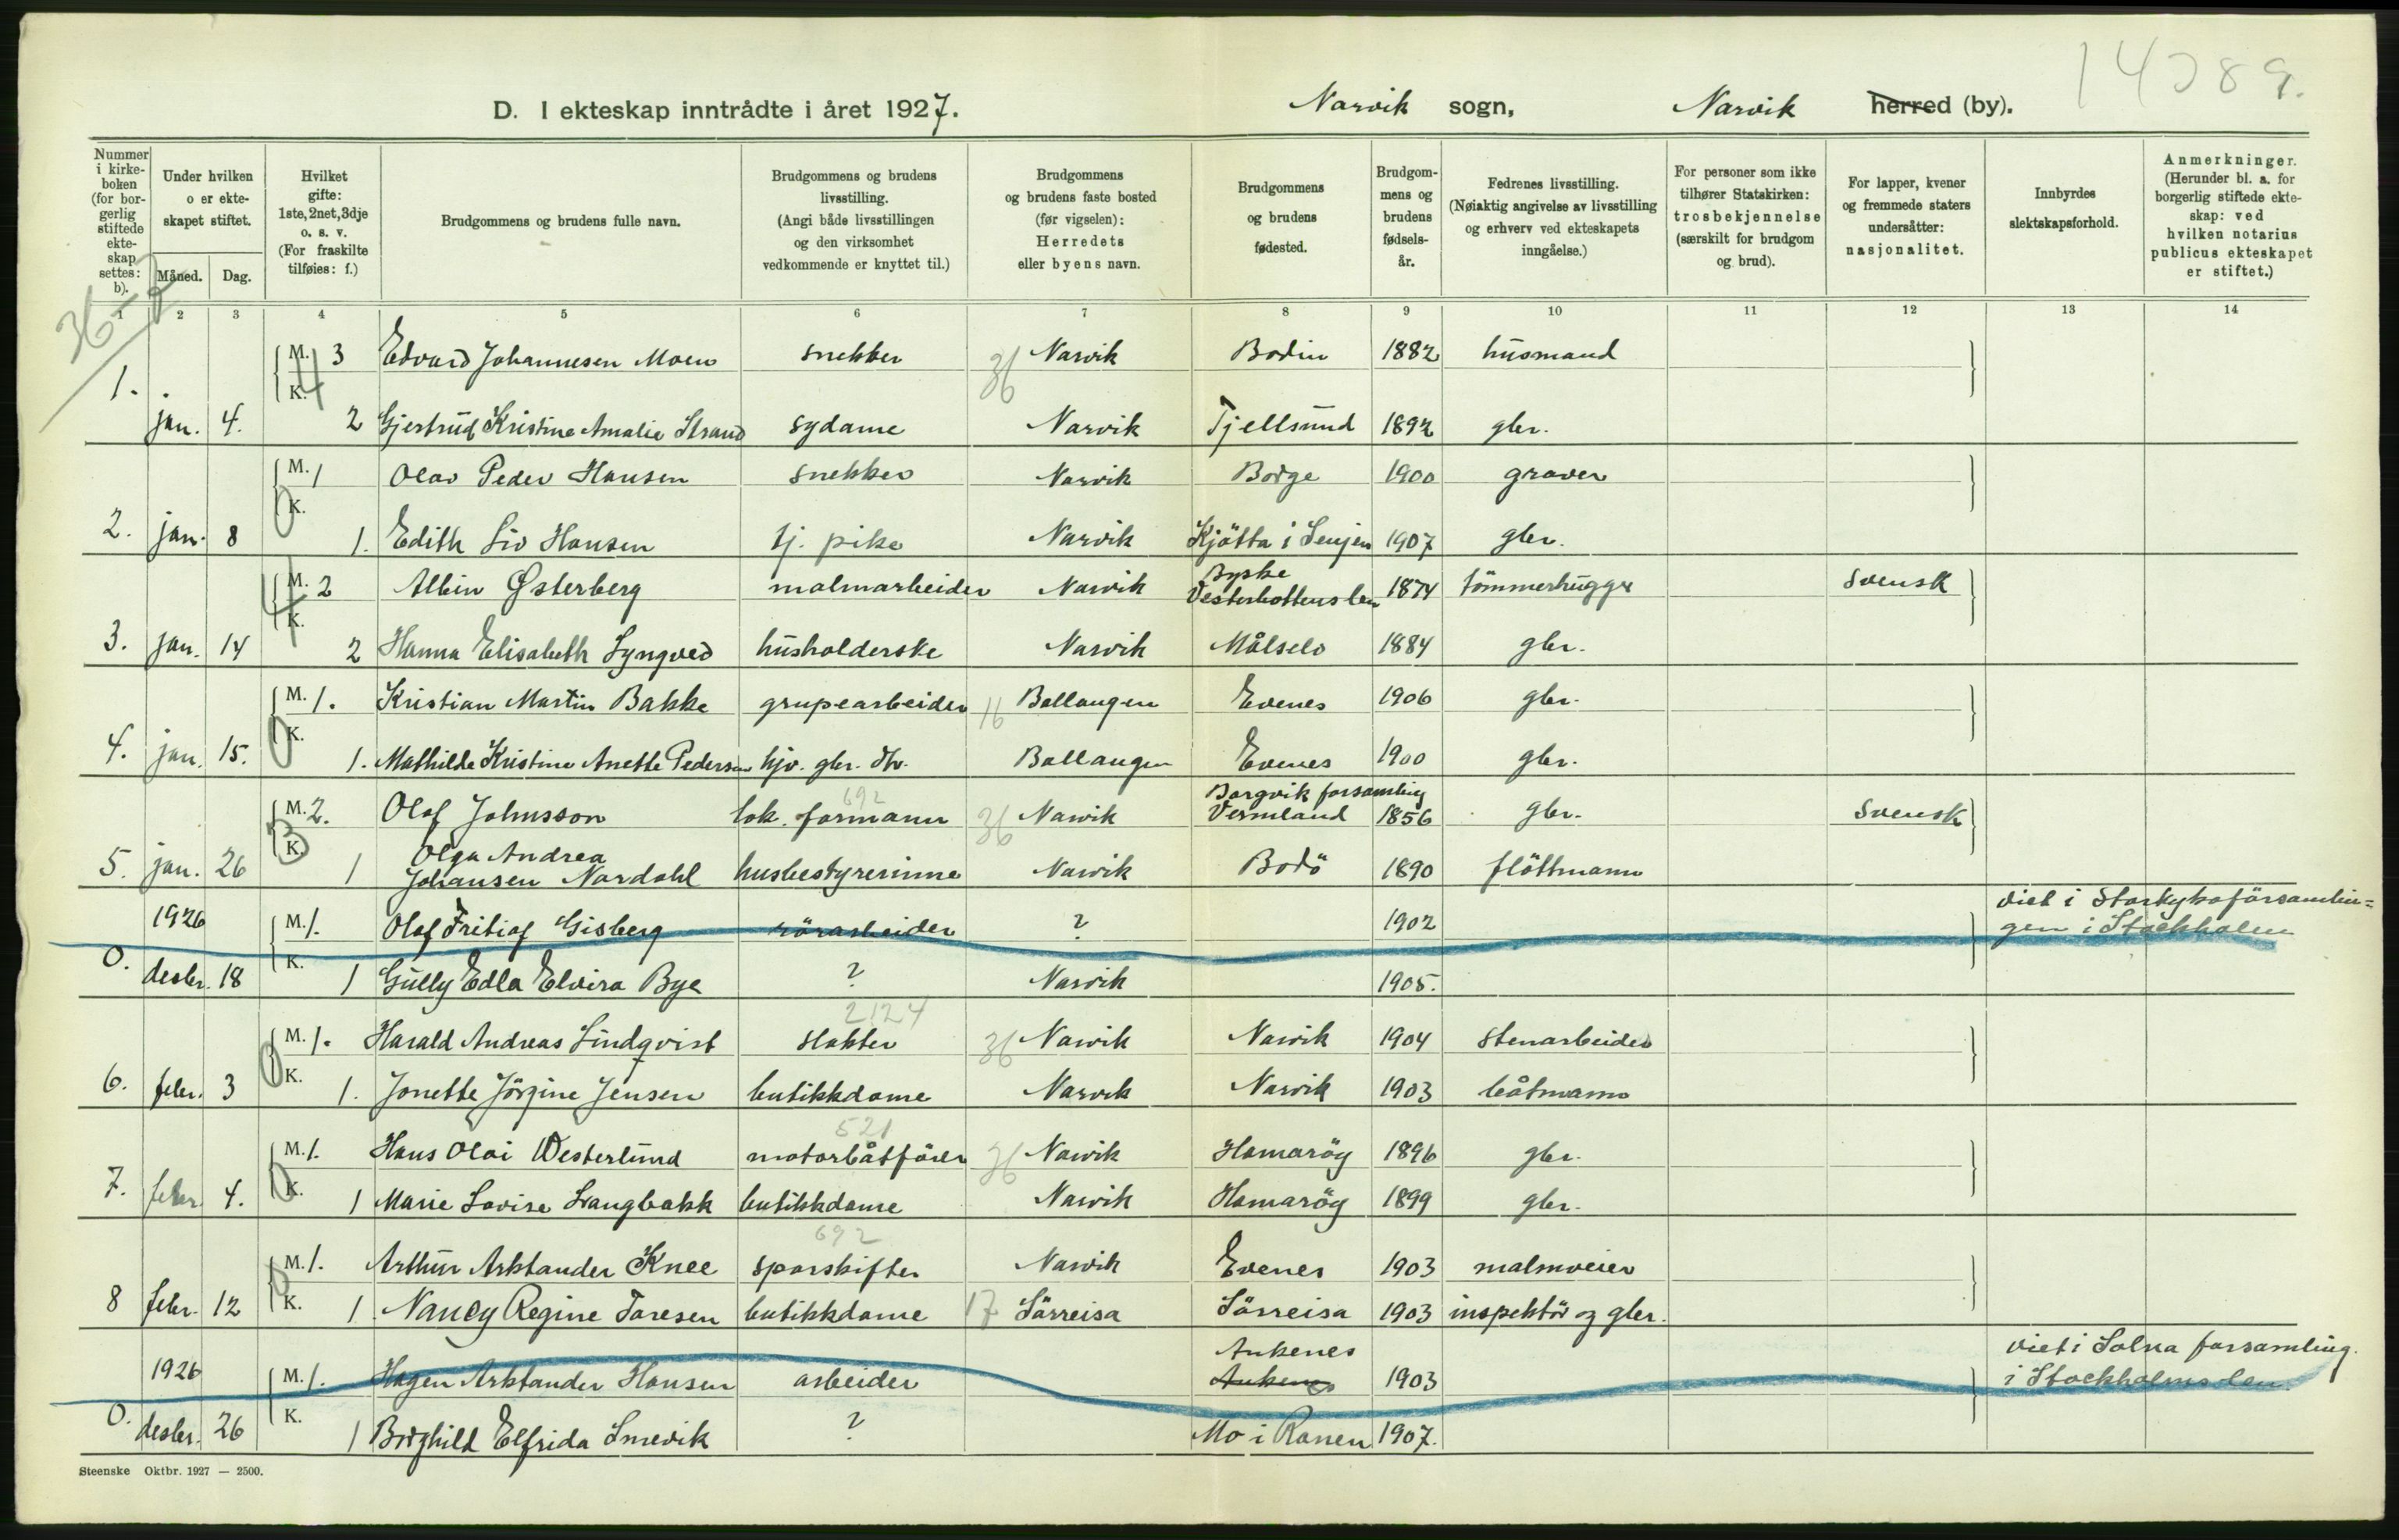 14389.
D. I ekteskap inntrådte i året 1927. Narvik sogn, Narvik herred (by).
Nummer i kirkeboken (for borgerlig stiftede ekteskap settes: b).
Under hvilken o er ekteskapet stiftet.
Måned. Dag.
Hvilket gifte: 1ste, 2net, 3dje o. s. v. (For fraskilte tilføies: f.)
Brudgommens og brudens fulle navn.
Brudgommens og brudens livsstilling. (Angi både livsstillingen og den virksomhet vedkommende er knyttet til.)
Brudgommens og brudens faste bosted (før vigselen): Herredets eller byens navn.
Brudgommens og brudens fødested.
Brudgommens og brudens fødselsår.
Fedrenes livsstilling. (Nøiaktig angivelse av livsstilling og erhverv ved ekteskapets inngåelse.)
For personer som ikke tilhører Statskirken: trosbekjennelse (særskilt for brudgom og brud).
For lapper, kvener og fremmede staters undersåtter: nasjonalitet.
Innbyrdes slektskapsforhold.
Anmerkninger. (Herunder bl. a. for borgerlig stiftede ekteskap: ved hvilken notarius publicus ekteskapet er stiftet.)
1 2 3 4 5 6 7 8 9 10 11 12 13 14
36-2
M. 3 Edvard Johannesen Moen snekker 36 Narvik Bodin 1882 husmand
1. jan. 4. K. 2 Gjertrud Kristine Amalie Strand sydame Narvik Tjellsund 1892 gbr.
M. 1 Olav Peder Hansen snekker Narvik Borge 1900 graver
2. jan. 8 K. 1. Edith Liv Hansen tj. pike Narvik Kjötta i Senjen 1907 gbr.
M. 2 Albin Østerberg malmarbeider Narvik Byske Vesterbottens len 1874 tömmerhugger Svensk
3. jan. 14 K. 2 Hanna Elisabeth Lyngved husholderske Narvik Målselv 1884 gbr.
M. 1. Kristian Martin Bakke grupearbeider 16 Ballangen Evenes 1906 gbr.
4. jan. 15. K. 1. Mathilde Kristine Anette Pedersen hjv. gbr. dtr. Ballangen Evenes 1900 gbr.
692
M. 2. Olof Johnsson lok. formann 36 Narvik Borgvik forsamling Vermland 1856 gbr. Svensk
5. jan. 26 K. 1 Olga Andrea Johansen Nordahl husbestyrerinne Narvik Bodö 1890 flöttmann
1926 M. 1. Olof Fritiof Gisberg rörarbeider ? 1902 viet i Storkyrkoförsamlin=
gen i Stockholm
0. desbr. 18 K. 1 Gully Edla Elvira Bye ? Narvik 1905.
2124
M. 1. Harald Andreas Lindqvist slakter 36 Narvik Narvik 1904 stenarbeider
6. febr. 3 K. 1. Jonette Jörgine Jensen butikkdame Narvik Narvik 1903 båtmann
521
M. 1. Hans Olai Westerlund motorbåtförer 36 Narvik Hamaröy 1896 gbr.
7. febr. 4. K. 1 Marie Lovise Langbakk butikkdame Narvik Hamaröy 1899 gbr.
692
M. 1. Arthur Arktander Knee sporskifter Narvik Evenes 1903 malmveier
8 febr. 12 K. 1 Nancy Regine Toresen butikkdame 17 Sörreisa Sörreisa 1903 inspektör og gbr.
1926 M. 1. Hagen Arktander Hansen arbeider Ankenes Ankenes 1903 viet i Solna forsamling.
i Stockholms len.
0. desbr. 26 K. 1 Borghild Elfrida Smevik ? Mo i Ranen 1907.
Steenske Oktbr. 1927 — 2500.